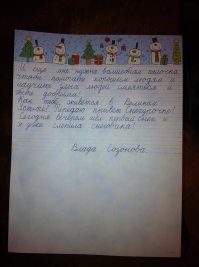 И еще мне нужна волшебная палочка,
чтобы помогать хорошим людям и
научить злых людей смеяться и
быть добрыми!
Как тебе живется в Великом
Устюге? Передаю привет Снегурочке!
Сегодня вечером шел первый снег и
я уже слепила снеговика!
Влада Созонова